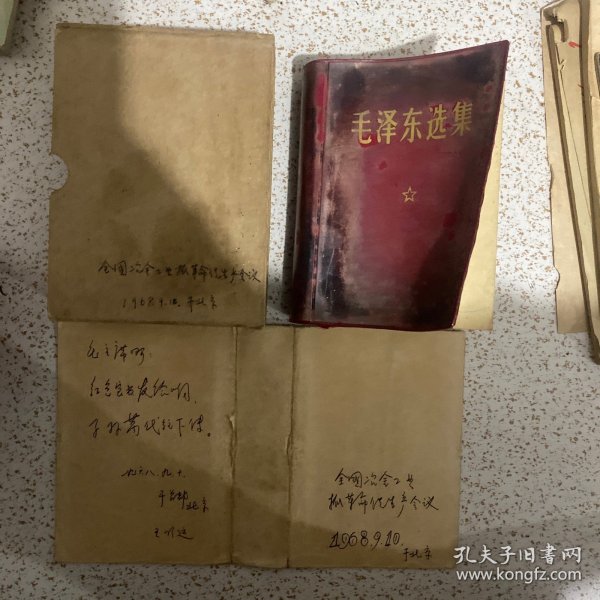 毛泽东选集
全国冶金工业抓革命促生产会议
1968.9.10. 于北京
红色宝书发给咱,
子孙万代往下传。
一九六八.九.十.
于
北京
全国冶金工业
抓革命促生产会议
1968.9.10.
于北京
孔夫子旧书网
www.kongfz.com